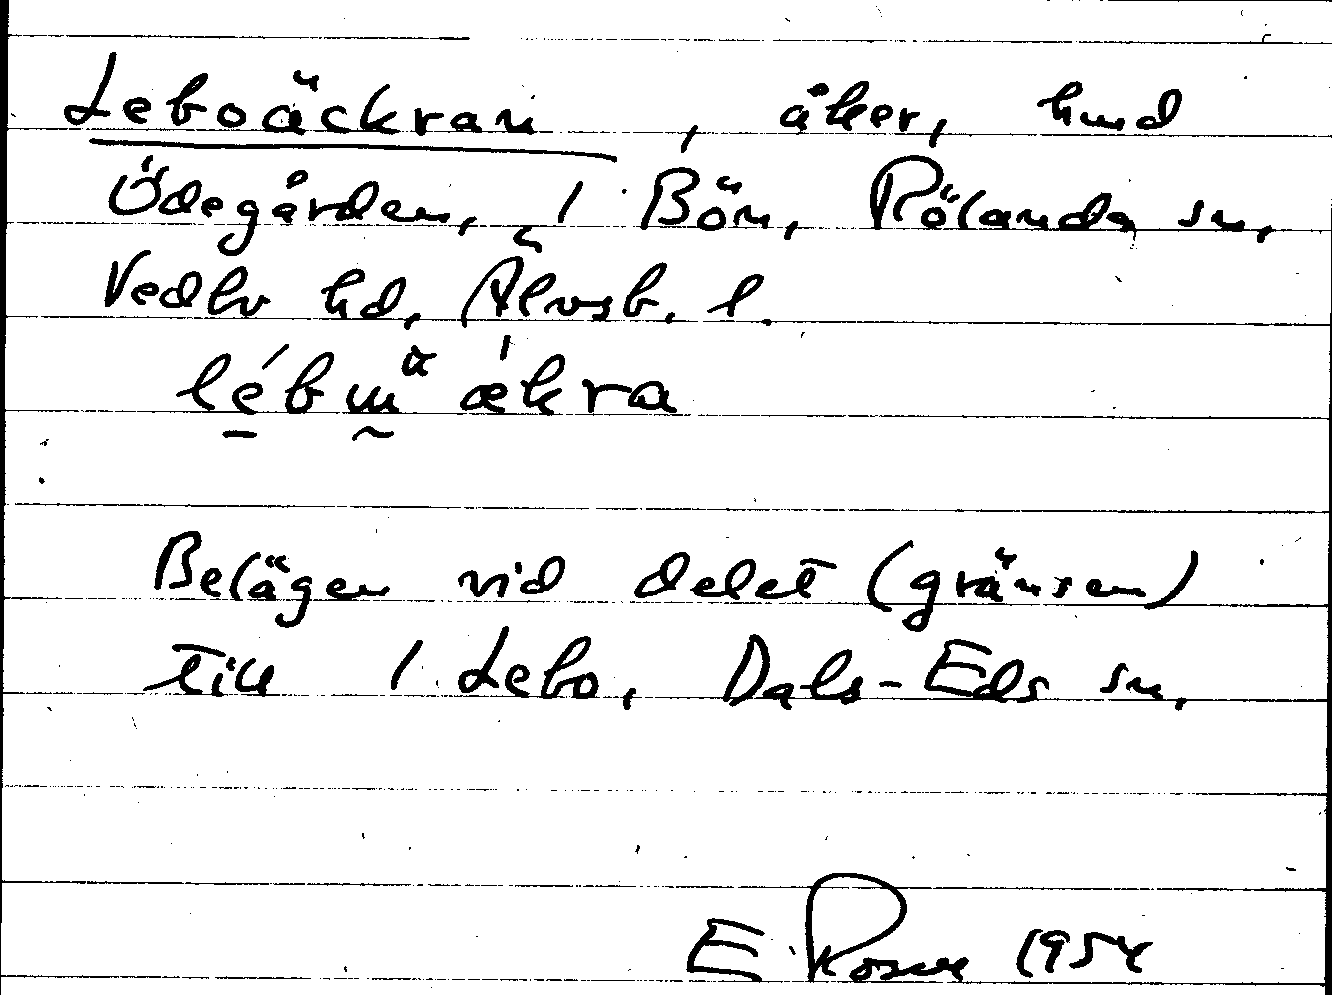 Leboäckran, åker, hmd
Ödegården, 1 Bön, Rölanda sn,
Vedbo hd, Älvsb. l.
Belägen vid delet (gränsen)
till 1 Lebo, Dals-Eds sn,
E. 1954